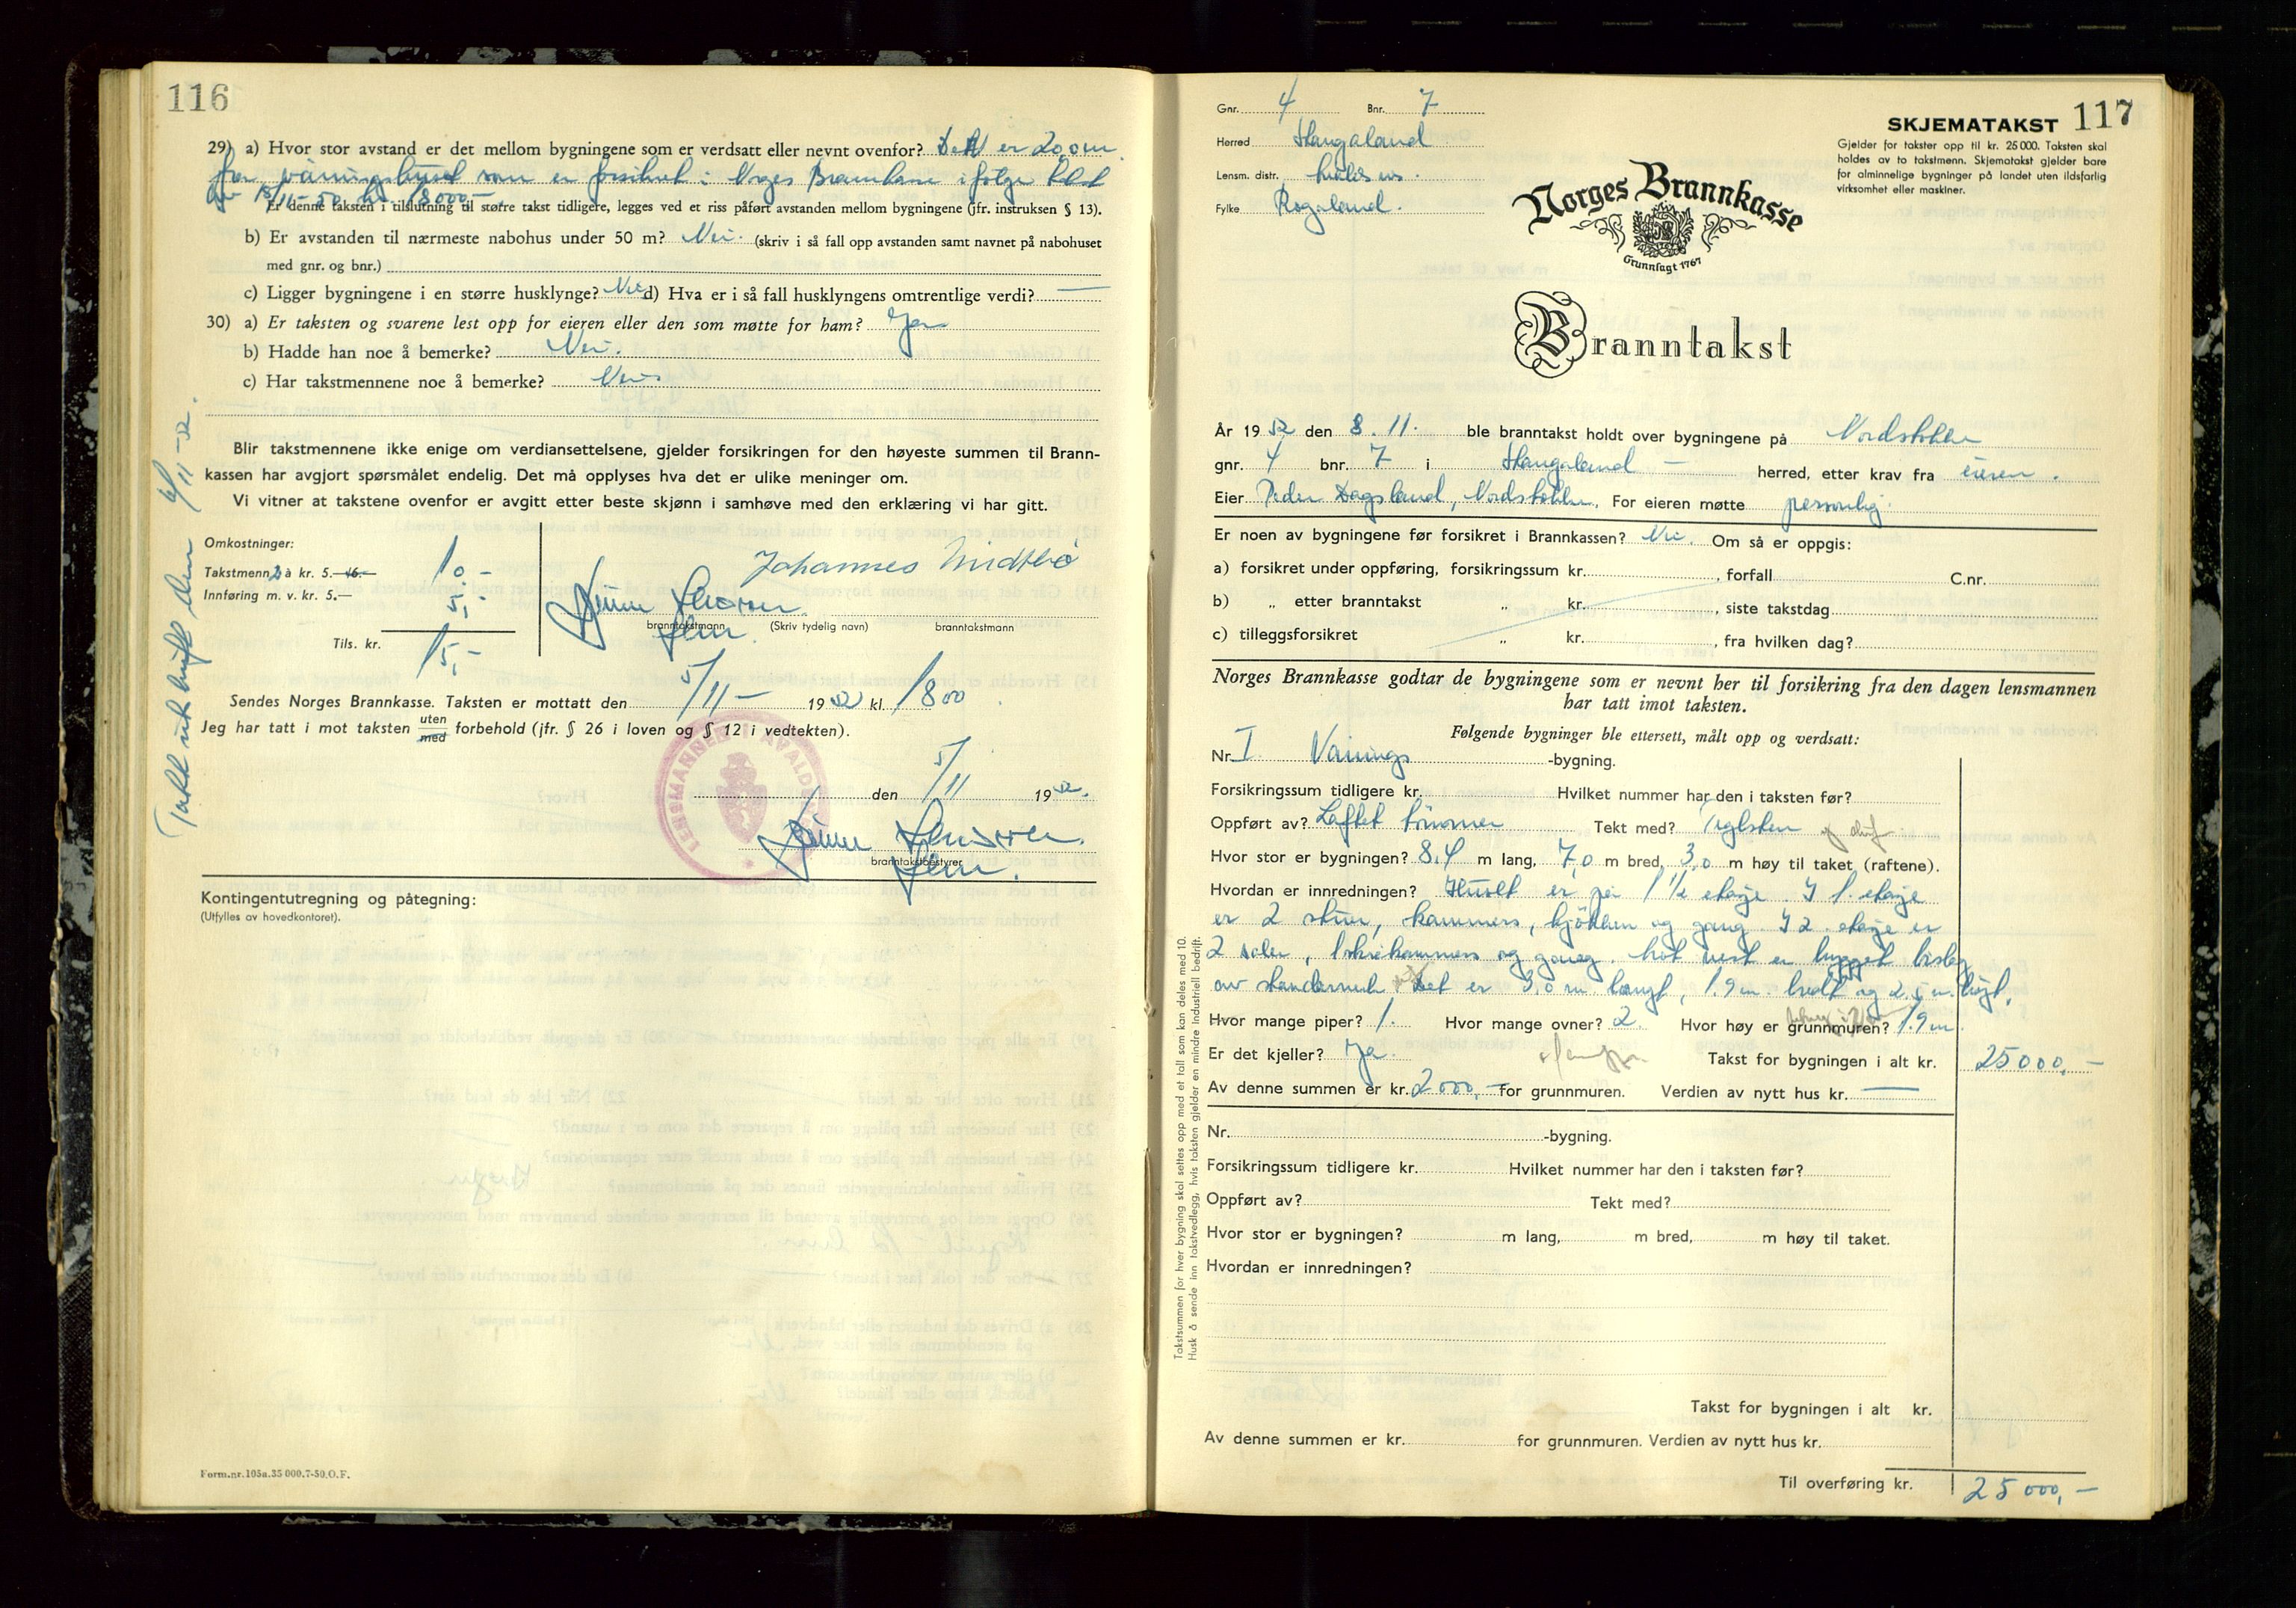 116
29) a) Hvor stor avstand er det mellom bygningene som er verdsatt eller nevnt ovenfor? Det er 20,0 m
fra våningshuset som er forsikret i Norges Brannkasse ifølge takst
av 18/11-50 kr. 18000,-
Er denne taksten i tilslutning til større takst tidligere, legges ved et riss påført avstanden mellom bygningene (jfr. instruksen § 13).
b) Er avstanden til nærmeste nabohus under 50 m? Nei. (skriv i så fall opp avstanden samt navnet på nabohuset
med gnr. og bnr.)
c) Ligger bygningene i en større husklynge? Nei d) Hva er i så fall husklyngens omtrentlige verdi? —
30) a) Er taksten og svarene lest opp for eieren eller den som møtte for ham? Ja
b) Hadde han noe å bemerke? Nei.
c) Har takstmennene noe å bemerke? Nei.
Blir takstmennene ikke enige om verdiansettelsene, gjelder forsikringen for den høyeste summen til Brann-
kassen har avgjort spørsmålet endelig. Det må opplyses hva det er ulike meninger om.
Vi vitner at takstene ovenfor er avgitt etter beste skjønn i samhøve med den erklæring vi har gitt.
Omkostninger:
Takstmenn 2 à kr. 5.— 10,-
Innføring m. v. kr. 5.— 5,-
Tils. kr. 15,-
Johannes
branntakstmann (Skriv tydelig navn) branntakstmann
Sendes Norges Brannkasse. Taksten er mottatt den 5/11 - 1952 kl. 1800
Jeg har tatt i mot taksten uten med forbehold (jfr. § 26 i loven og § 12 i vedtekten).
LENSMANNEN I AVALDSNES
den 5/11 1952.
branntakstbestyrer
Takst utskrift den 6/11-52.
Kontingentutregning og påtegning:
(Utfylles av hovedkontoret).
Form.nr.105a.35 000.7-50.O.F.
117
Gnr. 4 Bnr. 7
Herred Skaugaland
Lensm. distr.
Fylke Rogaland.
SKJEMATAKST
Gjelder for takster opp til kr. 25 000. Taksten skal
holdes av to takstmenn. Skjematakst gjelder bare
for alminnelige bygninger på landet uten ildsfarlig
virksomhet eller maskiner.
Norges Brannkasse
Grunnlagt 1767
Branntakst
År 1952 den 3. 11. ble branntakst holdt over bygningene på Nordstokke
gnr. 4 bnr. 7 i Skaugaland — herred, etter krav fra eieren.
Eier Peder Dagsland, Nordstokke. For eieren møtte personlig.
Er noen av bygningene før forsikret i Brannkassen? Nei. Om så er oppgis:
a) forsikret under oppføring, forsikringssum kr. , forfall C.nr.
b) „ etter branntakst „ kr. , siste takstdag
c) tilleggsforsikret „ kr. , fra hvilken dag?
Norges Brannkasse godtar de bygningene som er nevnt her til forsikring fra den dagen lensmannen
har tatt imot taksten.
Følgende bygninger ble ettersett, målt opp og verdsatt:
Nr. I Vånings -bygning.
Forsikringssum tidligere kr. Hvilket nummer har den i taksten før?
Oppført av? Laftet tømmer Tekt med? Teglsten og skif.
Hvor stor er bygningen? 8,4 m lang, 7,0 m bred, 3,0 m høy til taket (raftene).
Hvordan er innredningen? Huset er på 1 1/2 etasje. I 1. etasje
er 2 stuer, kammers, kjøkken og gang. I 2. etasje er
2 saler, 1 skråkammers og gang. Mot vest er bygget bislag
av standerverk Det er 3,0 m langt, 1.9 m. bredt og 2.5 m. høgt.
Hvor mange piper? 1. Hvor mange ovner? 2 Hvor høy er grunnmuren? 1.9 m.
Er det kjeller? Ja. Takst for bygningen i alt kr. 25000,-
Av denne summen er kr. 2000,- for grunnmuren. Verdien av nytt hus kr. —
Nr. -bygning.
Forsikringssum tidligere kr. Hvilket nummer har den i taksten før?
Oppført av? Tekt med?
Hvor stor er bygningen? m lang, m bred, m høy til taket.
Hvordan er innredningen?
Takst for bygningen i alt kr.
Av denne summen er kr. for grunnmuren. Verdien av nytt hus kr.
Til overføring kr. 25000,-
Takstsummen for hver bygning skal settes opp med et tall som kan deles med 10.
Husk å sende inn takstvedlegg, hvis taksten gjelder en mindre industriell bedrift.